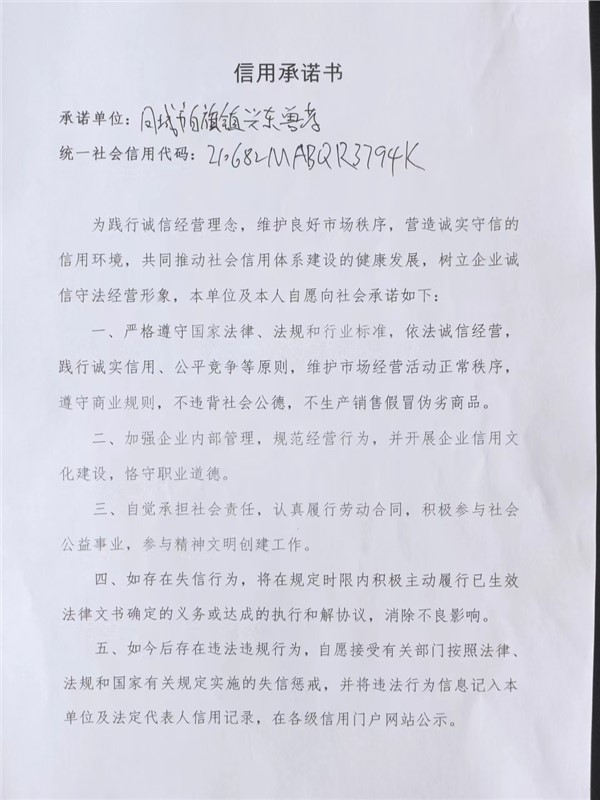 信用承诺书
承诺单位：凤城市白旗镇兴东兽药
统一社会信用代码：210682MABQR3794K
为践行诚信经营理念，维护良好市场秩序，营造诚实守信的
信用环境，共同推动社会信用体系建设的健康发展，树立企业诚
信守法经营形象，本单位及本人自愿向社会承诺如下：
一、严格遵守国家法律、法规和行业标准，依法诚信经营，
践行诚实信用、公平竞争等原则，维护市场经营活动正常秩序，
遵守商业规则，不违背社会公德，不生产销售假冒伪劣商品。
二、加强企业内部管理，规范经营行为，并开展企业信用文
化建设，恪守职业道德。
三、自觉承担社会责任，认真履行劳动合同，积极参与社会
公益事业，参与精神文明创建工作。
四、如存在失信行为，将在规定时限内积极主动履行已生效
法律文书确定的义务或达成的执行和解协议，消除不良影响。
五、如今后存在违法违规行为，自愿接受有关部门按照法律、
法规和国家有关规定实施的失信惩戒，并将违法行为信息记入本
单位及法定代表人信用记录，在各级信用门户网站公示。